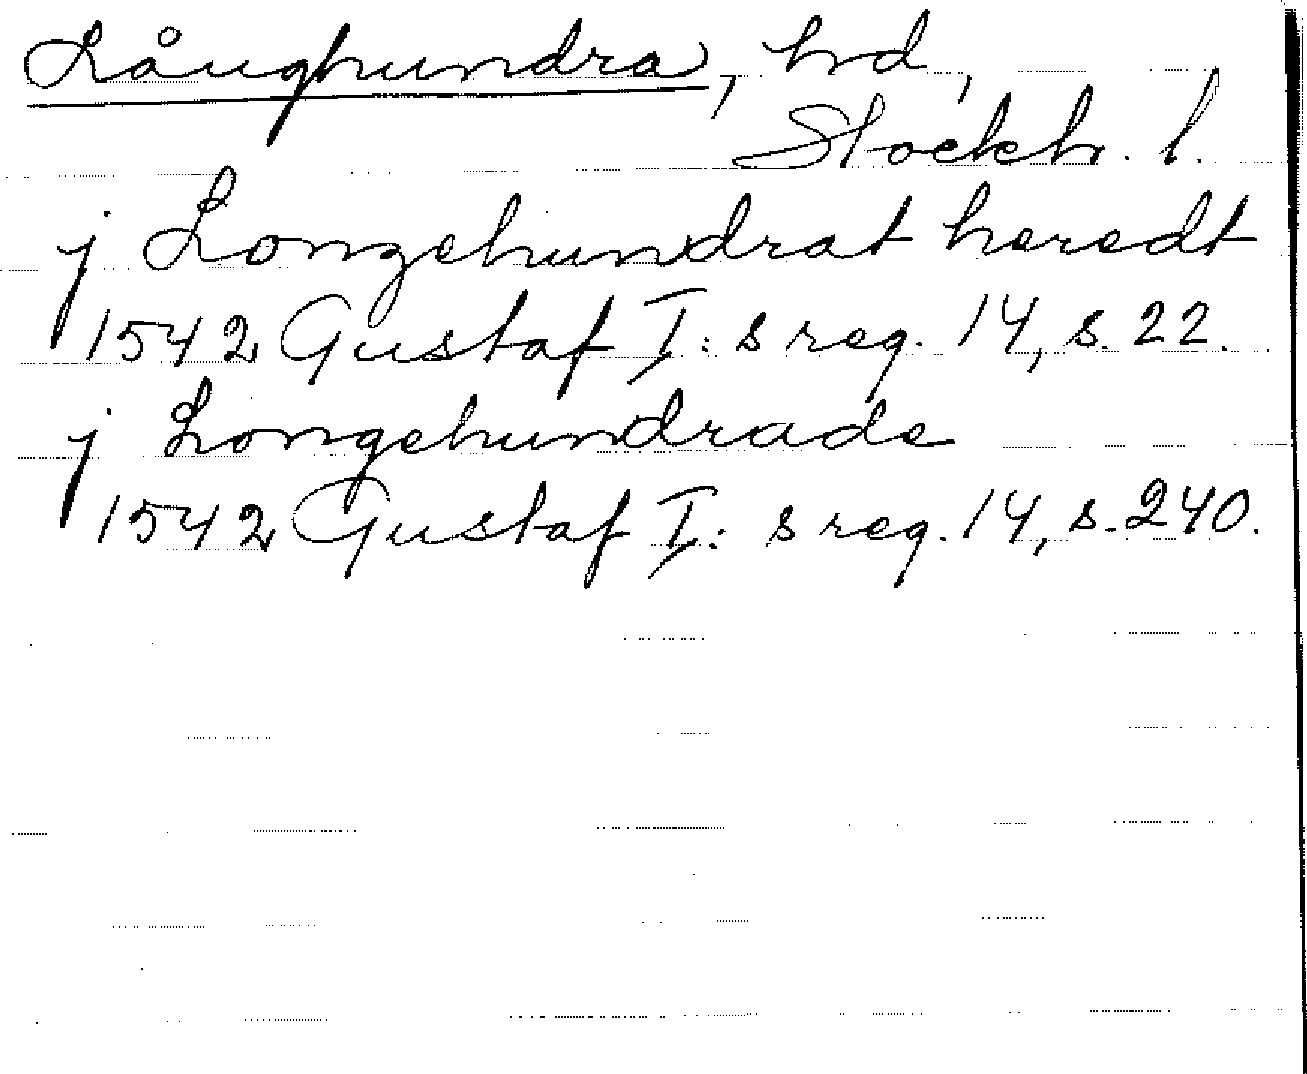 Långhundra, hd,
Stockh. l.
j Longehundrat heredt
1542 Gustaf I:s reg. 14, s. 22.
j Longehundrade
1542 Gustaf I:s reg. 14, s. 240.